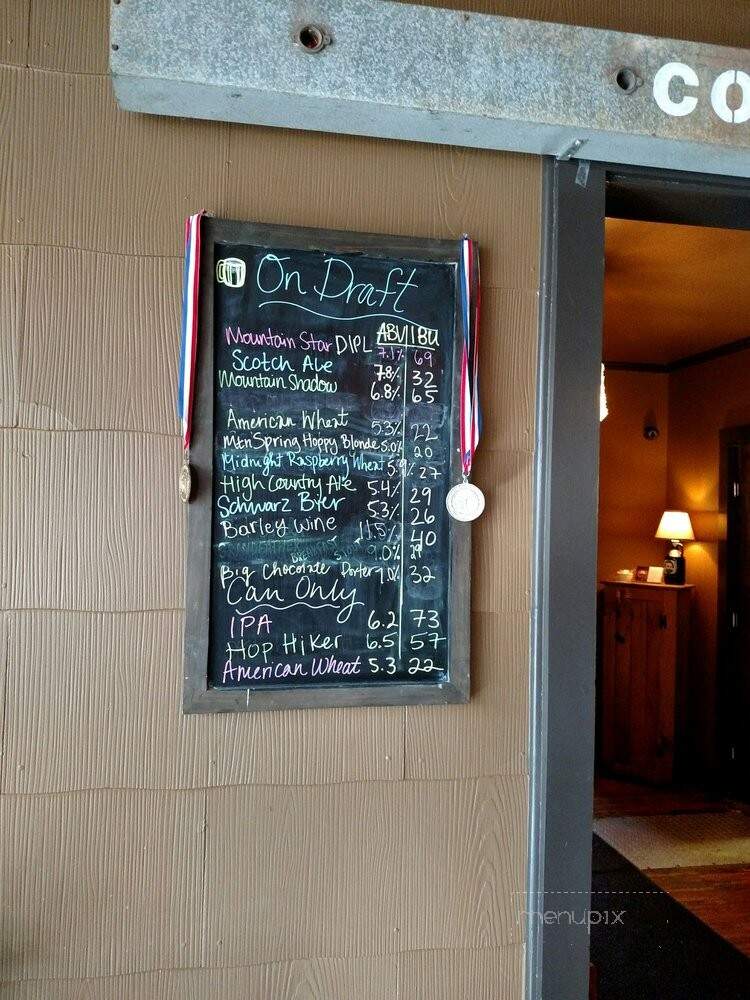 CO
On Draft
ABV IBU
Mountain Star DIPL 7.1% 69
Scotch Ale 7.8% 32
Mountain Shadow 6.8% 65
American Wheat 5.3% 22
Mtn Spring Hoppy Blonde 5.0% 20
Midnight Raspberry Wheat 5.9% 27
High Country Ale 5.4% 29
Schwarz Bier 5.3% 26
Barley Wine 11.5% 40
9.0% 29
Big Chocolate Porter 32
Can Only
IPA 6.2 73
Hop Hiker 6.5 57
American Wheat 5.3 22
menupix